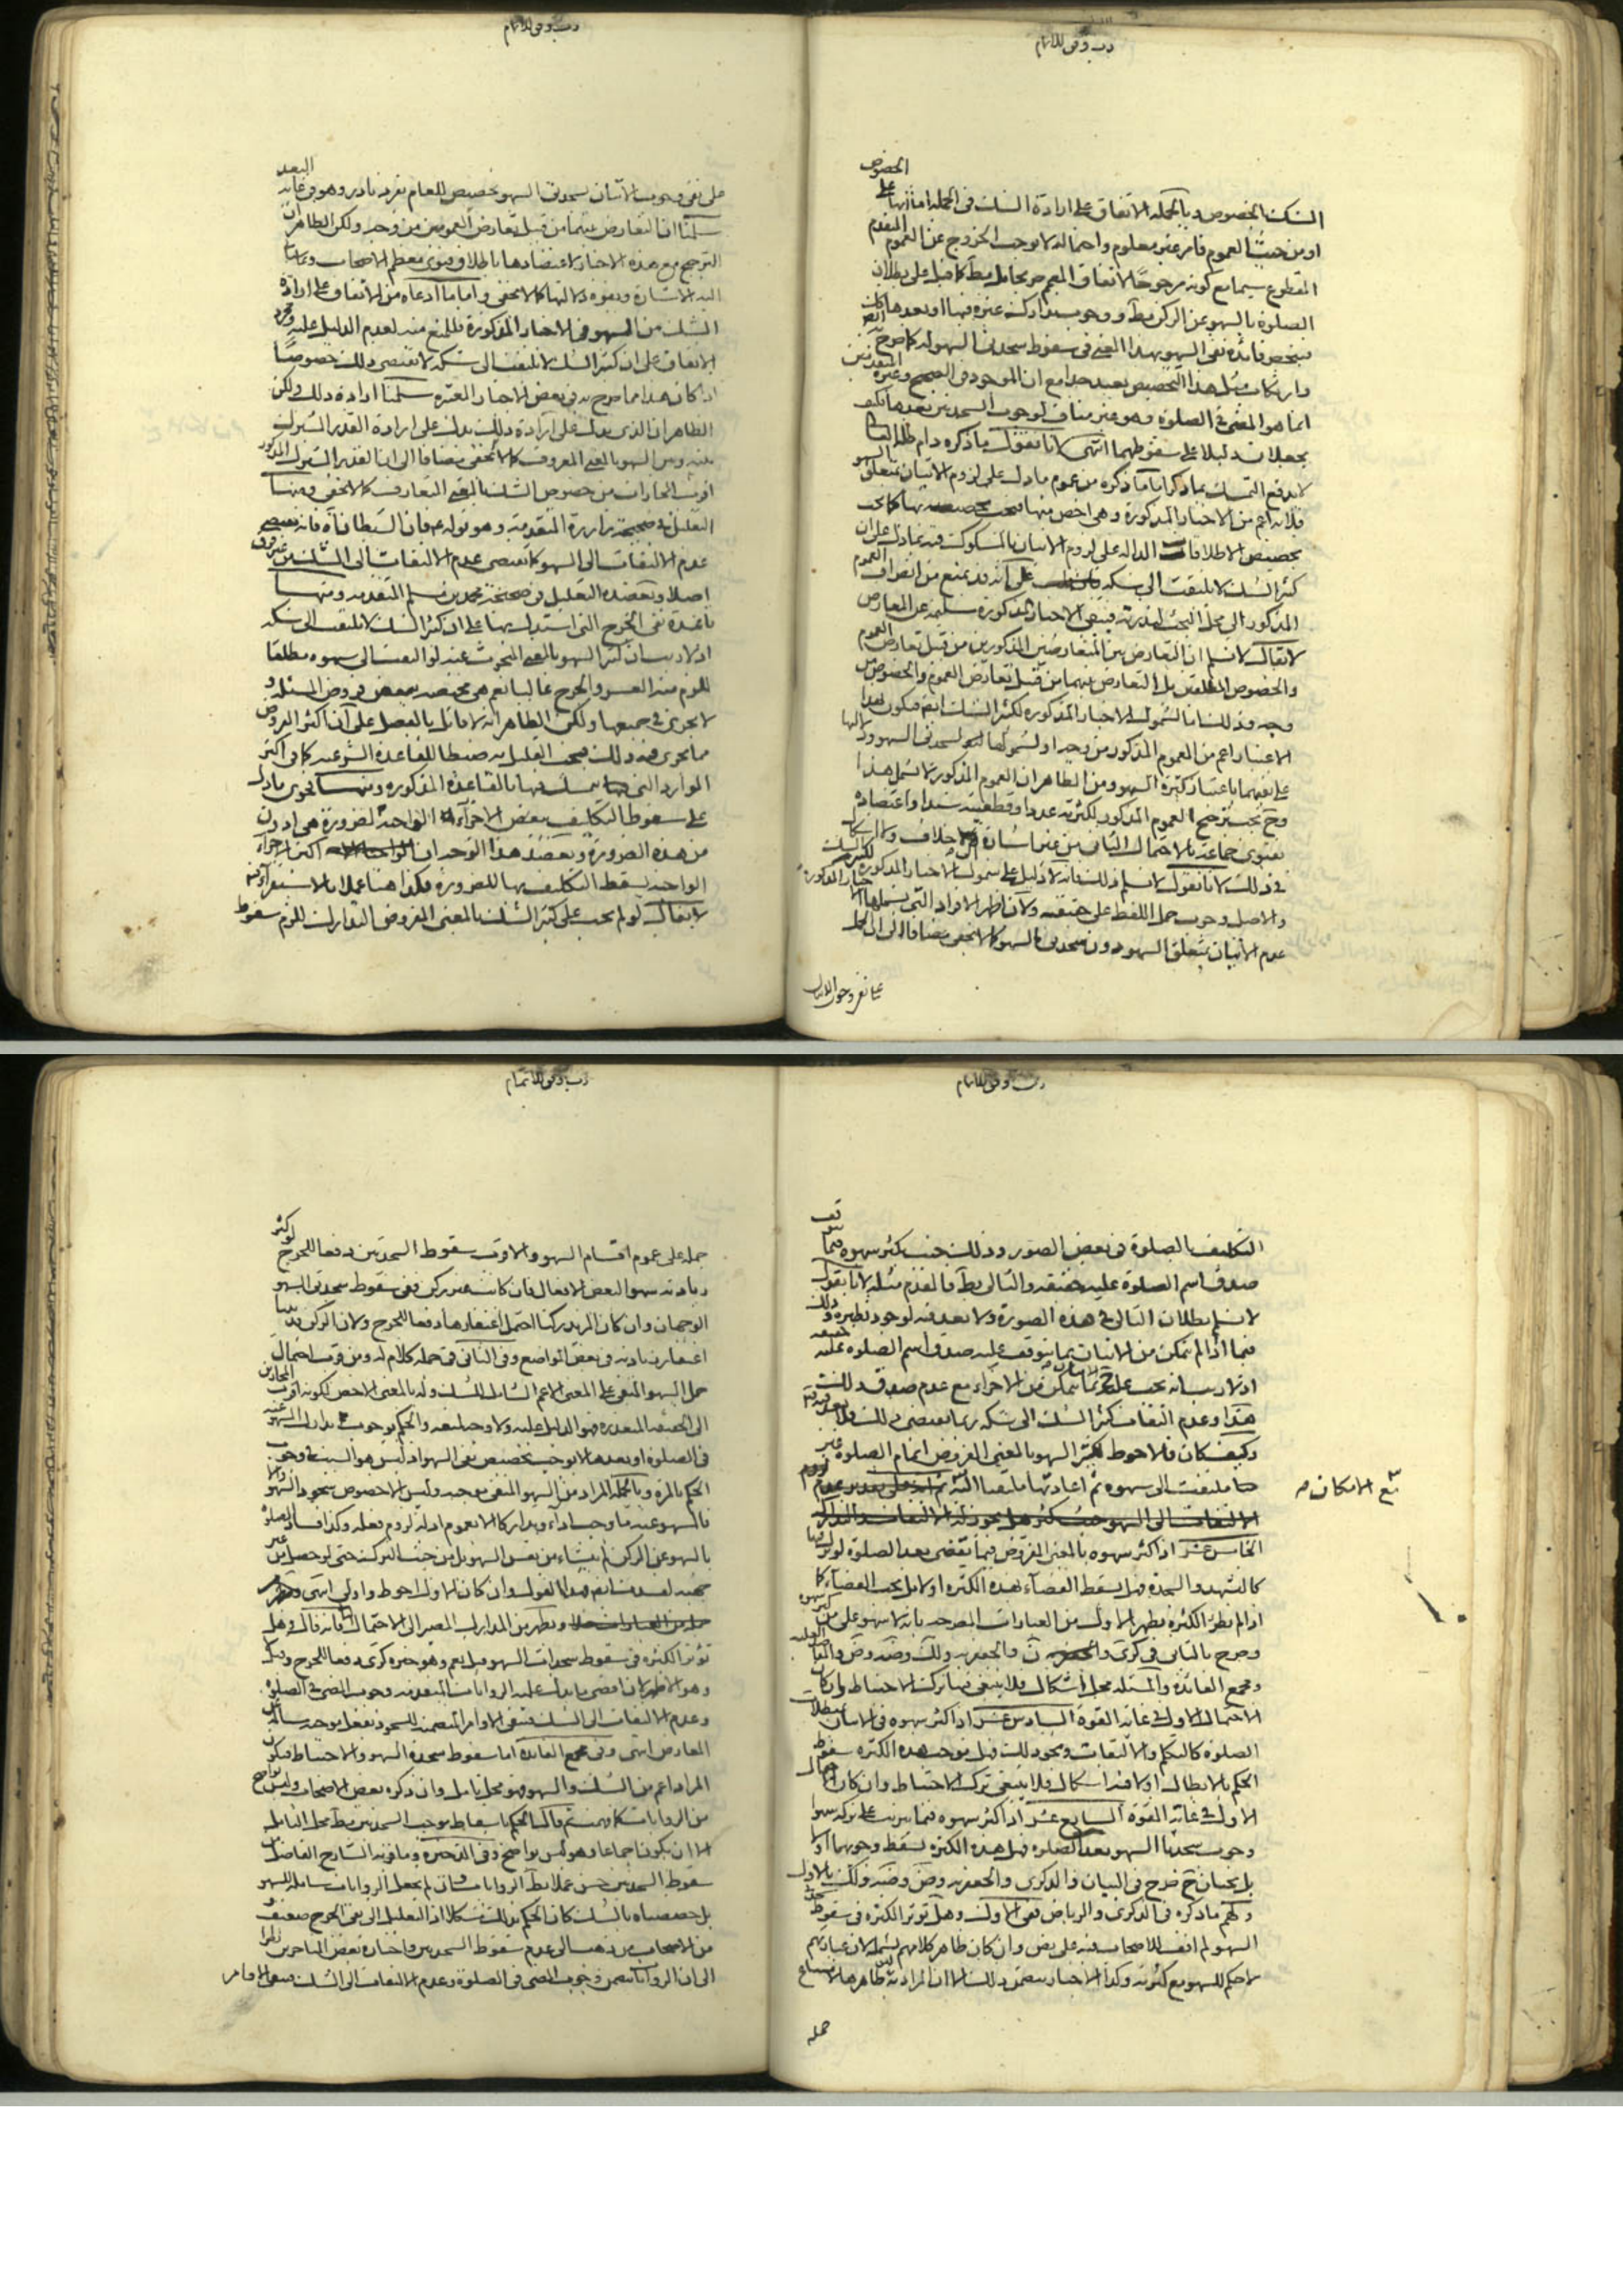 رب وفق للاتمام
الشك بالخصوص وبالجملة الاتفاق على ارادة الشك فى الجملة اما انها على الخصوص
او من حيث العموم فامر غير معلوم واحتماله لا يوجب الخروج عن العموم المتقدم
المقطوع سيما مع كونه مرجوحا لاتفاق المعمم
الصلوة بالسهو عن الركن مط ووجوب تدارك غيره فيها او بعدها كان
فائدة نفى السهو بهذا المعنى فى سقوط سجدتى السهو له كما صرح
وارتكاب مثل هذا التخصيص بعيد جدا مع ان الموجود فى الصحيح وغيره المتقدمين
انما هو المضى فى الصلوة وهو غير مناف لوجوب السجدتين بعدها فكيف
يجعلان دليلا على سقوطهما انتهى لانا نقول ما ذكره دام ظله العالى
لا يدفع التمسك بما ذكرنا ما ذكره من عموم ما دل على لزوم الاتيان بمتعلق السهو
فلانه اعم من الاخبار المذكورة وهى اخص منها فيجب تخصيصه بها كما يجب
تخصيص الاطلاقات الدالة على لزوم الاتيان بالمشكوك فيه بما دل على ان
كثير الشك لا يلتفت الى شكه على انه قد يمنع من انصراف العموم
المذكور الى محل البحث لندرته فيبقى الاخبار المذكورة سليمة عن المعارض
لا يقال لا نسلم ان التعارض بين المتعارضين المذكورين من قبيل تعارض العموم
والخصوص المطلقين بل التعارض بينهما من قبيل تعارض العموم والخصوص من
وجه وذلك لشمول الاخبار المذكورة لكثير الشك ايضا فيكون بهذا
الاعتبار اعم من العموم المذكور من وجه او لشمولها لسجدتى السهو ودلالتها
على نفيهما باعتبار كثرة السهو ومن الظاهر ان العموم المذكور لا يشمل هذا
وح يجب ترجيح العموم المذكور لكثرته عددا وقطعيته سندا واعتضاده
بفتوى جماعة بالاحتمال الثانى من غير اشارة الى خلاف ولا اشكال
فى ذلك لانا نقول لا نسلم ذلك فانه لا دليل على شمول الاخبار المذكورة لكثير الشك
والاصل وجوب حمل اللفظ على حقيقته ولان اظهر الافراد التى يشملها الاخبار المذكورة
عدم الاتيان بمتعلق السهو دون سجدتى السهو كما لا يخفى مضافا الى ان الحمل
على نفى وجوب الاتيان
رب وفق للاتمام
على نفى وجوب الاتيان بسجدتى السهو تخصيص للعام بفرد نادر وهو فى غاية البعد
سلمنا ان التعارض بينهما من قبيل تعارض العمومين من وجه ولكن الظاهر ان
الترجيح مع هذه الاخبار لاعتضادها باطلاق فتوى معظم الاصحاب
اليه الاشارة وبقوة دلالتها كما لا يخفى واما ما ادعاه من الاتفاق على ارادة
الشك من السهو فى الاخبار المذكورة فللمنع منه لعدم الدليل عليه ومجرد
الاتفاق على ان كثير الشك لا يلتفت الى شكه لا يقتضى ذلك خصوصا
اذا كان هذا مما صرح به فى بعض الاخبار المعتبرة سلمنا ارادة ذلك ولكن
الظاهر ان الذى يدل على ارادة ذلك يدل على ارادة القدر المشترك
بينه وبين السهو بالمعنى المعروف كما لا يخفى مضافا الى ان القدر المشترك المذكور
اقرب المجازات من خصوص الشك بالمعنى المتعارف كما لا يخفى ومنها
التعليل فى صحيحة زرارة المتقدمة وهو قوله ع فان الشيطان آه فانه يقتضى
عدم الالتفات الى السهو كما يقتضى عدم الالتفات الى الشك من غير فرق
اصلا ويعضده التعليل فى صحيحة محمد بن مسلم المتقدمة ومنها
قاعدة نفى الحرج التى استدل بها على ان كثير الشك لا يلتفت الى شكه
اذ لا ريب ان كثير السهو بالمعنى المبحوث عنه لو التفت الى سهوه مطلقا
للزم منه العسر والحرج غالبا نعم هى مختصة ببعض فروض المسئلة و
لا يجرى فى جميعها ولكن الظاهر انه لا قائل بالفصل على ان اكثر الفروض
مما يجرى فيه ذلك فيجب التعليل به ضبطا للقاعدة الشرعية كما فى اكثر
الموارد التى يتمسك فيها بالقاعدة المذكورة ومنها فحوى ما دل
على سقوط التكليف ببعض الاجزاء الواجبة لضرورة هى ادون
من هذه الضرورة ويعضد هذا الوجه ان اكثر الاجزاء
الواجبة يسقط التكليف بها للضرورة فكذا هنا عملا بالاستقراء
لا يقال لو لم يجب على كثير الشك بالمعنى المفروض التدارك للزم سقوط
رب وفق للاتمام
التكليف بالصلوة فى بعض الصور وذلك حيث يكثر سهوه فيما يتوقف
صدق اسم الصلوة عليه حقيقة والتالى بط فالمقدم مثله لانا نقول
لا نسلم بطلان التالى فى هذه الصورة ولا بعد فيه لوجود نظيره وذلك
فيما اذا لم يتمكن من الاتيان بما يتوقف عليه صدق اسم الصلوة عليه حقيقة
اذ لا ريب انه يجب عليه ح الاتيان بما يتمكن من الاجزاء مع عدم صدق ذلك
هذا وعدم التفات كثير الشك الى شكه ربما يقتضى ذلك
وكيف كان فالاحوط لكثير السهو بالمعنى المفروض اتمام الصلوة غير
ملتفت الى سهوه ثم اعادتها ملتفتا اليه
مع الامكان صح
الخامس عشر اذا كثر سهوه بالمعنى المفروض فيما يقضى بعد الصلوة لو ترك فيها
كالتشهد والسجدة فهل يسقط القضاء بهذه الكثرة او لا بل يجب القضاء كما
اذا لم يطرء الكثرة يظهر الاول من العبارات المصرحة بانه لا سهو على من كثر سهوه
وصرح بالثانى فى كرى والجعفرية ولك وضه وض والفاضلية
ومجمع الفائدة والمسئلة محل اشكال فلا ينبغى فيها ترك الاحتياط وان كان
الاحتمال الاول فى غاية القوة السادس عشر اذا كثر سهوه فى الاتيان بمبطلات
الصلوة كالتكلم والالتفات ونحو ذلك فهل يوجب هذه الكثرة سقوط
الحكم بالابطال او لا فيه اشكال فلا ينبغى ترك الاحتياط وان كان احتمال
الاول فى غاية القوة السابع عشر اذا كثر سهوه فيما يترتب على تركه سهوا
وجوب سجدتا السهو بعد الصلوة فهل هذه الكثرة يسقط وجوبهما او لا
بل يجبان ح صرح فى البيان والذكرى والجعفرية وض وضه ولك بالاول
ولهم ما ذكره فى الذكرى والرياض ففى الاول وهل تؤثر الكثرة فى سقوط سجدتى
السهو لم اقف للاصحاب فيه على نص وان كان ظاهر كلامهم يشمله لان عبارتهم
لا حكم للسهو مع كثرته وكذا الاخبار يتضمن ذلك الا ان المراد به ظاهرا
حمله
رب وفق للاتمام
حمله على عموم اقسام السهو والاقرب سقوط السجدتين دفعا للحرج لو كثر
زيادته سهوا لبعض الافعال فان كانت غير ركن ففى سقوط سجدتى السهو
الوجهان وان كان المزيد ركنا احتمل اغتفارها دفعا للحرج ولان الركن قد
اغتفار زيادته فى بعض المواضع وفى الثانى فى جملة كلام له ومن قرب احتمال
حمل السهو المنفى على المعنى الاعم الشامل للشك وله بالمعنى الاخص لكونه اقرب المجازين
الى الحقيقة المتعذرة فهو الدليل عليه ولا وجه لبعده والحكم بوجوب تدارك المسهو عنه
فى الصلوة او بعدها لا يوجب تخصيص نفى السهو اذ ليس هو السبب فى وجوب
الحكم بالمرة وبالجملة المراد من السهو المنفى موجبه وليس الا خصوص سجود السهو
فالمسهو عنه ما وجب اداء وتداركا الا بعموم ادلة لزوم فعله وكذا فساد الصلوة
بالسهو عن الركن لم ينشاء من نفس السهو بل من حيث الترك حتى لو حصل من غير
جهته لفسدت ايضا فهذا القول وان كان الاول احوط واولى انتهى
ويظهر من المدارك المصير الى الاحتمال فانه قال وهل
تؤثر الكثرة فى سقوط سجدات السهو قيل نعم وهو خيرة كرى دفعا للحرج وقيل لا
وهو الاظهر لان اقصى ما يدل عليه الروايات المتقدمة وجوب المضى فى الصلوة
وعدم الالتفات الى الشك فتبقى الاوامر المتضمنة للسجود بفعل موجبه سالمة عن
المعارض انتهى وفى مجمع الفائدة اما سقوط سجدة السهو والاحتياط فيكون
المراد اعم من الشك والسهو فهو محل تامل وان ذكره بعض الاصحاب وليس بواضح
من الروايات كما فهمت ثم قال فالحكم باسقاط موجب السجدتين مط محل التامل
الا ان يكون اجماعا وهو ليس بواضح وفى الذخيرة وما قربه الشارح الفاضل من
سقوط السجدتين حسن عملا بظ الروايات وان لم يجعل الروايات شاملة للسهو
بل خصصناه بالشك كان الحكم بذلك مشكلا اذ التعليل الى نفى الحرج ضعيف و
من الاصحاب من ذهب الى عدم سقوط السجدتين واختاره بعض المتاخرين نظرا
الى ان الروايات تتضمن وجوب المضى فى الصلوة وعدم الالتفات الى الشك فيبقى الاوامر